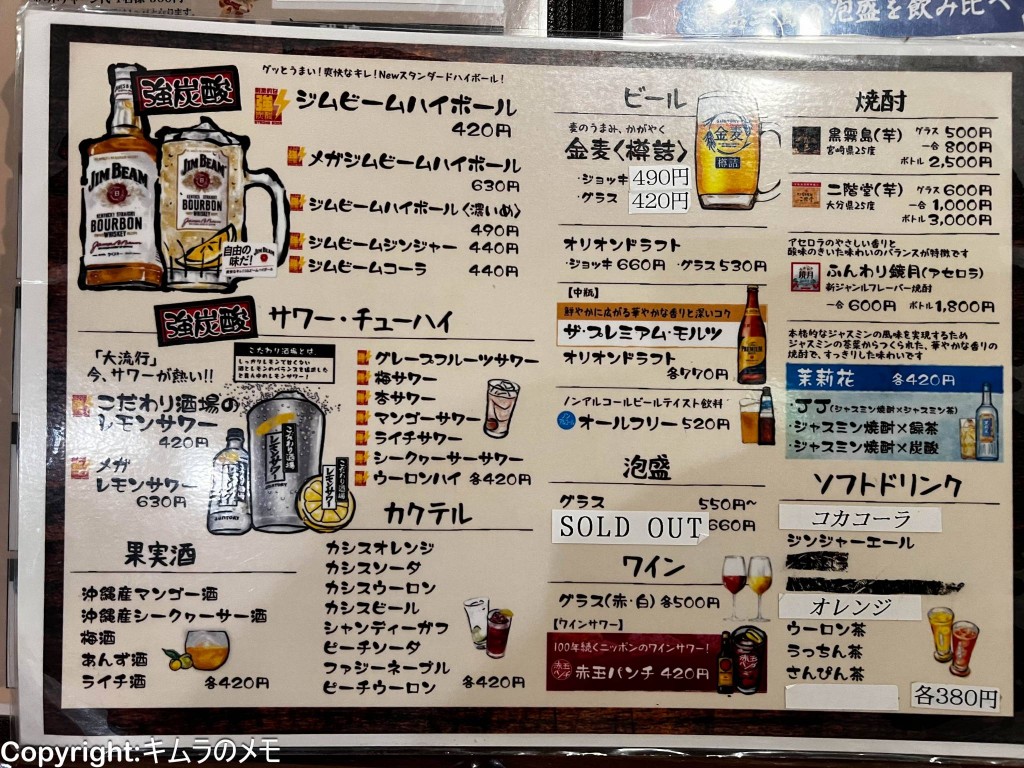 泡盛を飲み比べ
強炭酸
グッとうまい！爽快なキレ！Newスタンダードハイボール！
強
ジムビームハイボール
420円
メガジムビームハイボール
630円
ジムビームハイボール〈濃いめ〉
490円
ジムビームジンジャー 440円
ジムビームコーラ 440円
JIM BEAM
BOURBON
WHISKEY
JIM BEAM
BOURBON
WHISKEY
自由の
味だ！
強炭酸
サワー・チューハイ
「大流行」
今、サワーが熱い!!
こだわり酒場の
レモンサワー
420円
メガ
レモンサワー
630円
こだわり酒場とは、
こだわり酒場
レモンサワー
SUNTORY
こだわり酒場
レモンサワー
グレープフルーツサワー
梅サワー
杏サワー
マンゴーサワー
ライチサワー
シークヮーサーサワー
ウーロンハイ 各420円
果実酒
沖縄産マンゴー酒
沖縄産シークヮーサー酒
梅酒
あんず酒
ライチ酒 各420円
カクテル
カシスオレンジ
カシスソーダ
カシスウーロン
カシスビール
シャンディーガフ
ピーチソーダ
ファジーネーブル
ピーチウーロン 各420円
ビール
麦のうまみ、かがやく
金麦〈樽詰〉
・ジョッキ 490円
・グラス 420円
金麦
樽詰
オリオンドラフト
・ジョッキ 660円 ・グラス 530円
【中瓶】
鮮やかに広がる華やかな香りと深いコク
ザ・プレミアム・モルツ
オリオンドラフト
各770円
ノンアルコールビールテイスト飲料
オールフリー 520円
泡盛
グラス 550円～
SOLD OUT 660円
ワイン
グラス(赤・白) 各500円
【ワインサワー】
100年続くニッポンのワインサワー！
赤玉パンチ 420円
焼酎
黒霧島(芋) グラス 500円
宮崎県25度 一合 800円
ボトル 2,500円
二階堂(芋) グラス 600円
大分県25度 一合 1,000円
ボトル 3,000円
アセロラのやさしい香りと
酸味のきいた味わいのバランスが特徴です
ふんわり鏡月(アセロラ)
新ジャンルフレーバー焼酎
一合 600円 ボトル 1,800円
本格的なジャスミンの風味を実現するため
ジャスミンの茶葉からつくられた、華やかな香りの
焼酎で、すっきりした味わいです
茉莉花 各420円
・JJ(ジャスミン焼酎×ジャスミン茶)
・ジャスミン焼酎×緑茶
・ジャスミン焼酎×炭酸
ソフトドリンク
コカコーラ
ジンジャーエール
オレンジ
ウーロン茶
うっちん茶
さんぴん茶
各380円
Copyright:キムラのメモ